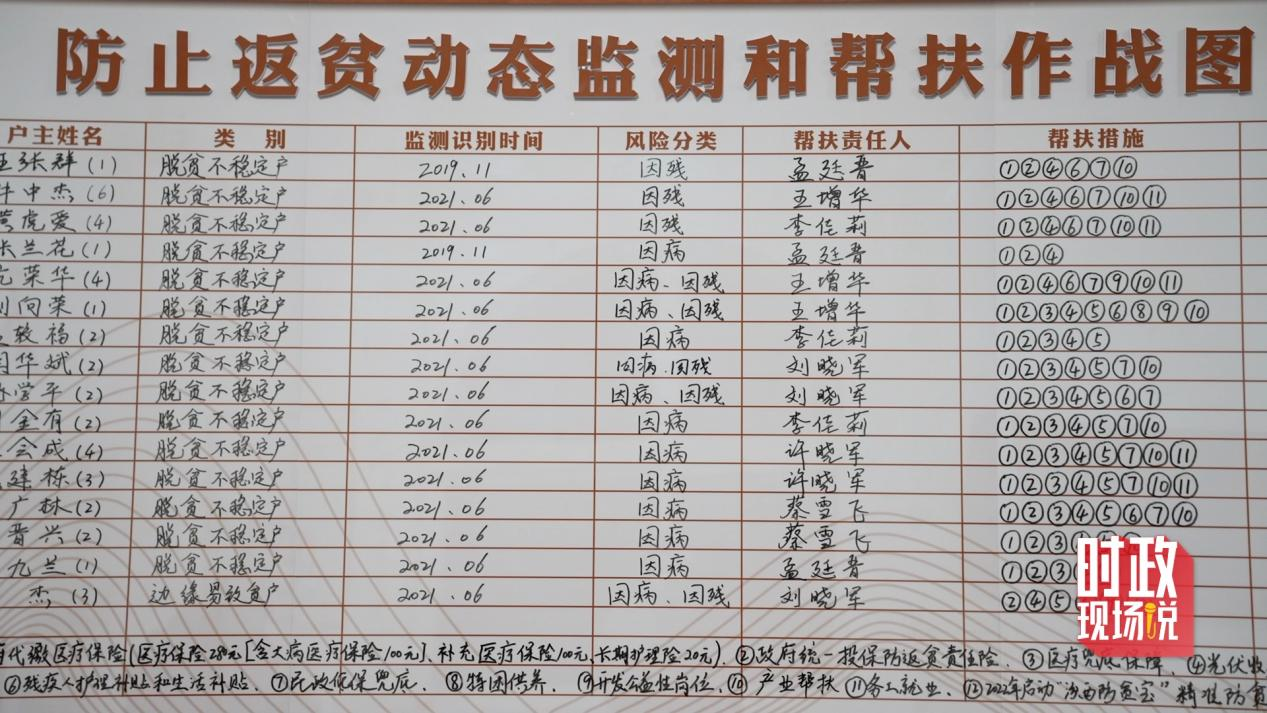 防止返贫动态监测和帮扶作战图
户主姓名 类 别 监测识别时间 风险分类 帮扶责任人 帮扶措施
张群(1) 脱贫不稳定户 2019.11 因残 孟廷晋 ①②④⑥⑦⑩
中杰(6) 脱贫不稳定户 2021.06 因残 王增华 ①②④⑥⑦⑩⑪
虎爱(4) 脱贫不稳定户 2021.06 因残 李佳莉 ①②④⑥⑦⑩⑪
兰花(1) 脱贫不稳定户 2019.11 因病 孟廷晋 ①②④
荣华(4) 脱贫不稳定户 2021.06 因病、因残 王增华 ①②④⑥⑦⑨⑩⑪
向荣(1) 脱贫不稳定户 2021.06 因病、因残 王增华 ①②③④⑤⑥⑧⑨⑩
较福(2) 脱贫不稳定户 2021.06 因病 李佳莉 ①②③④⑤
华斌(2) 脱贫不稳定户 2021.06 因病、因残 刘晓军 ①②③④⑤⑦⑩
学平(2) 脱贫不稳定户 2021.06 因病、因残 刘晓军 ①②③④⑤⑥⑦
金有(2) 脱贫不稳定户 2021.06 因病 李佳莉 ①②③④⑤⑦⑩
会成(4) 脱贫不稳定户 2021.06 因病 许晓军 ①②③④⑤⑦⑩⑪
建栋(3) 脱贫不稳定户 2021.06 因病 许晓军 ①②③④⑤⑦⑩⑪
广林(2) 脱贫不稳定户 2021.06 因病 蔡雪飞 ①②③④⑤⑥⑦⑩
晋兴(2) 脱贫不稳定户 2021.06 因病 蔡雪飞 ①②③
九兰(1) 脱贫不稳定户 2021.06 因病 孟廷晋 ①②③
杰(3) 边缘易致贫户 2021.06 因病、因残 刘晓军 ②④⑤
代缴医疗保险(医疗保险280元[含大病医疗保险100元]、补充医疗保险100元、长期护理险20元)、②政府统一投保防返贫责任险、③医疗兜底保障、④光伏收
⑥残疾人护理补贴和生活补贴、⑦民政低保兜底、⑧特困供养、⑨开发公益性岗位、⑩产业帮扶 ⑪务工就业、⑫2022年启动“汾西防贫宝”精准防贫
时政
现场说